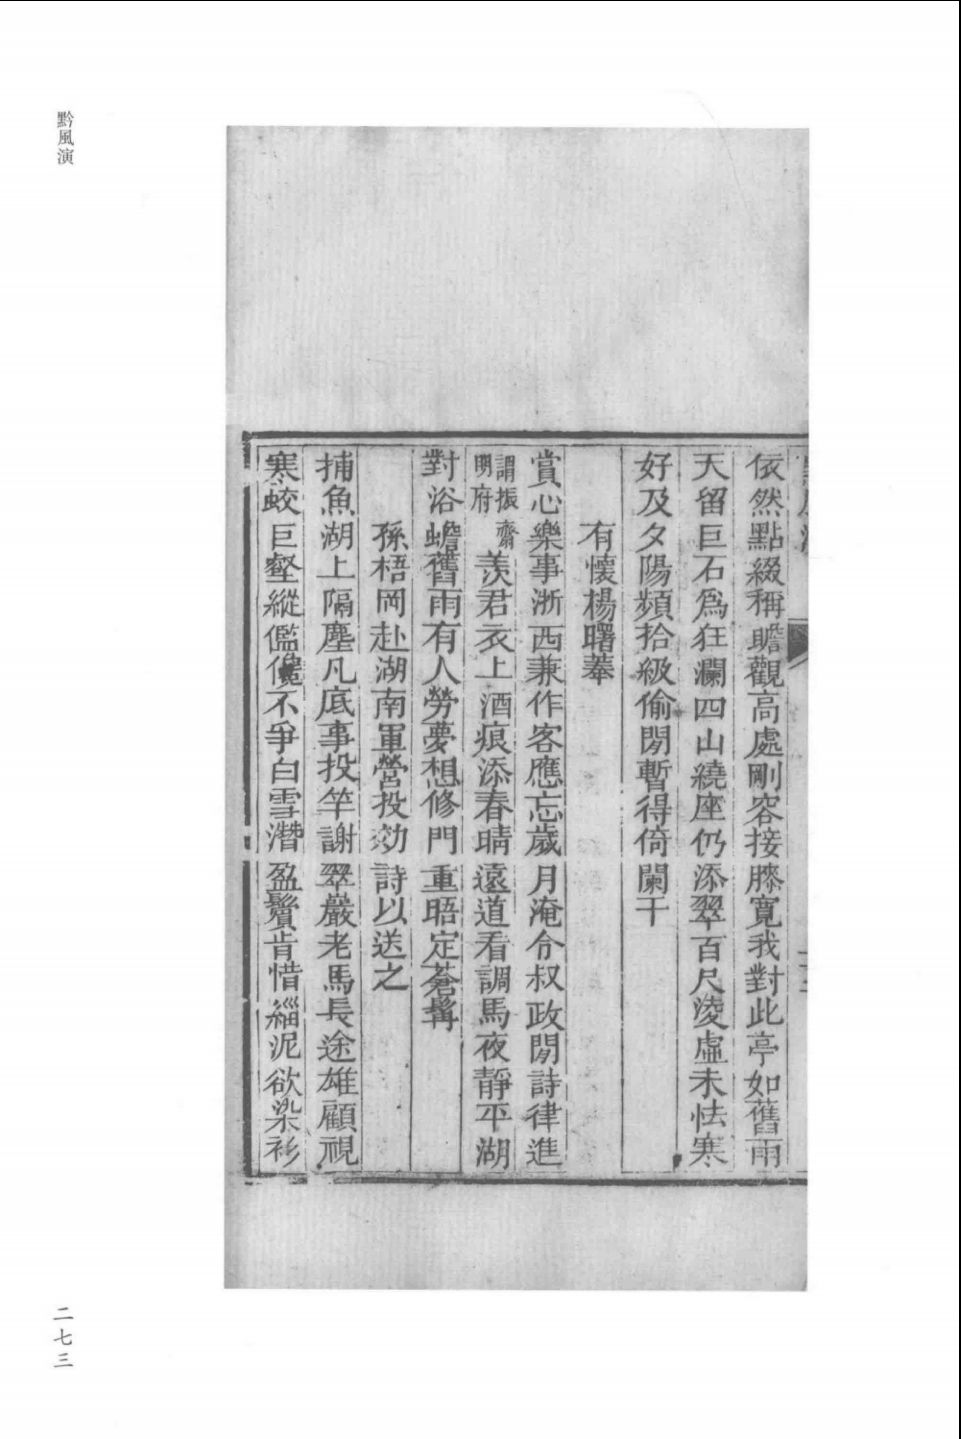 依然點綴稱瞻觀高處剛容接膝寬我對此亭如舊雨
天留巨石爲狂瀾四山繞座仍添翠百尺淩虛未怯寒
好及夕陽頻拾級偷閒暫得倚闌干
有懷楊曙菴
賞心樂事浙西兼作客應忘歲月淹令叔政閒詩律進
謂振齋
明府
羨君衣上酒痕添春晴遠道看調馬夜靜平湖
對浴蟾舊雨有人勞夢想修門重晤定蒼髯
孫梧岡赴湖南軍營投効詩以送之
捕魚湖上隔塵凡底事投竿謝翠巖老馬長途雄顧視
寒蛟巨壑縱儖儳不爭白雪潛盈鬢肯惜緇泥欲染衫
黔風演
二七三